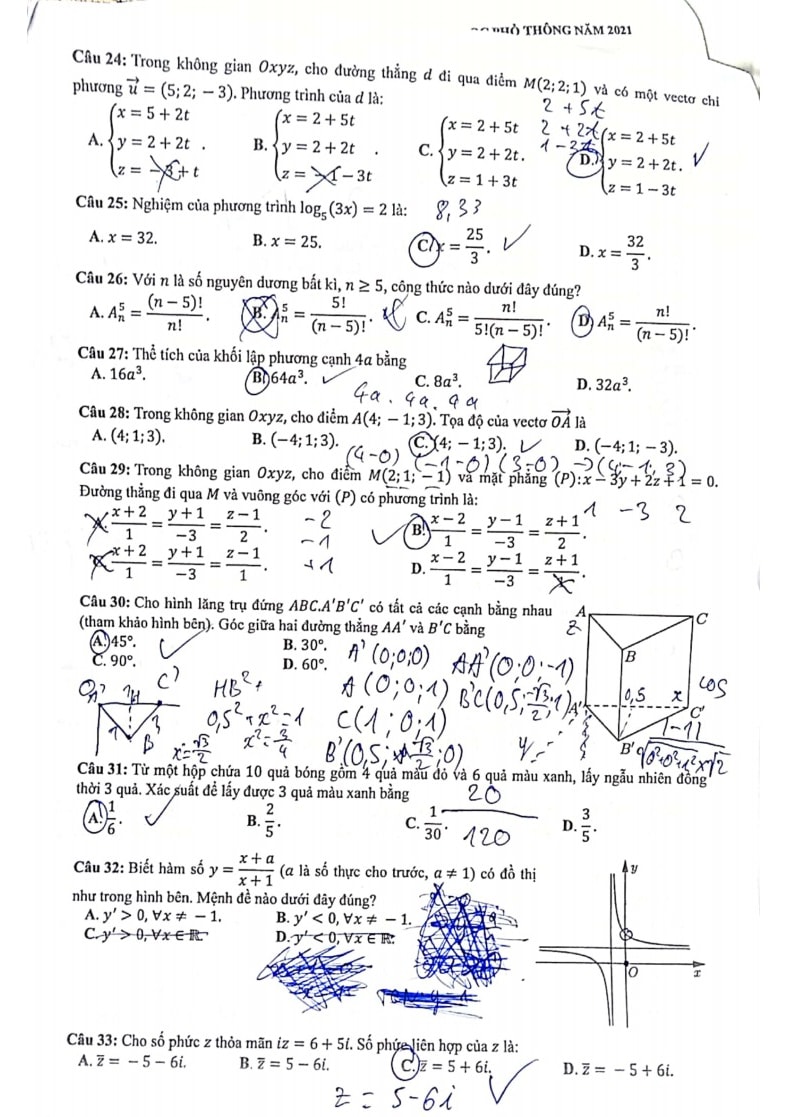 THÔNG NĂM 2021
Câu 24: Trong không gian Oxyz, cho đường thẳng d đi qua điểm M(2; 2; 1) và có một vectơ chỉ
phương u⃗ = (5; 2; −3). Phương trình của d là:
2 + 5t
2 + 2t
1 − 3t
A. {x = 5 + 2t B. {x = 2 + 5t C. {x = 2 + 5t D. {x = 2 + 5t
y = 2 + 2t . y = 2 + 2t . y = 2 + 2t. y = 2 + 2t.
z = −3 + t z = −1 − 3t z = 1 + 3t z = 1 − 3t
Câu 25: Nghiệm của phương trình log₅(3x) = 2 là: 8,33
A. x = 32. B. x = 25. C. x = 25/3. D. x = 32/3.
Câu 26: Với n là số nguyên dương bất kì, n ≥ 5, công thức nào dưới đây đúng?
A. Aₙ⁵ = (n − 5)!/n!. B. Aₙ⁵ = 5!/(n − 5)!. C. Aₙ⁵ = n!/5!(n − 5)!. D. Aₙ⁵ = n!/(n − 5)!.
Câu 27: Thể tích của khối lập phương cạnh 4a bằng
A. 16a³. B. 64a³. C. 8a³. D. 32a³.
4a . 4a . 4a
Câu 28: Trong không gian Oxyz, cho điểm A(4; −1; 3). Tọa độ của vectơ OA⃗ là
A. (4; 1; 3). B. (−4; 1; 3). C. (4; −1; 3). D. (−4; 1; −3).
(4−0) (−1−0) (3−0) → (4; −1; 3)
Câu 29: Trong không gian Oxyz, cho điểm M(2; 1; −1) và mặt phẳng (P): x − 3y + 2z + 1 = 0.
Đường thẳng đi qua M và vuông góc với (P) có phương trình là:
1 −3 2
A. (x + 2)/1 = (y + 1)/−3 = (z − 1)/2. B. (x − 2)/1 = (y − 1)/−3 = (z + 1)/2.
−2
−1
+1
(x + 2)/1 = (y + 1)/−3 = (z − 1)/1. D. (x − 2)/1 = (y − 1)/−3 = (z + 1)/1.
Câu 30: Cho hình lăng trụ đứng ABC.A'B'C' có tất cả các cạnh bằng nhau
(tham khảo hình bên). Góc giữa hai đường thẳng AA' và B'C bằng
A. 45°. B. 30°.
C. 90°. D. 60°.
A C
B
0,5 x
A' C'
B'
A'(0;0;0) AA'(0;0;−1)
A(0;0;1) B'C(0,5; −√3/2; 1)
C(1;0;1)
B'(0,5; √3/2; 0)
cos
C'
H
B
HB² +
0,5² + x² = 1
x² = 3/4
x = √3/2
Câu 31: Từ một hộp chứa 10 quả bóng gồm 4 quả màu đỏ và 6 quả màu xanh, lấy ngẫu nhiên đồng
thời 3 quả. Xác suất để lấy được 3 quả màu xanh bằng
20
120
A. 1/6. B. 2/5. C. 1/30. D. 3/5.
Câu 32: Biết hàm số y = (x + a)/(x + 1) (a là số thực cho trước, a ≠ 1) có đồ thị
như trong hình bên. Mệnh đề nào dưới đây đúng?
A. y' > 0, ∀x ≠ −1. B. y' < 0, ∀x ≠ −1.
C. y' > 0, ∀x ∈ ℝ. D. y' < 0, ∀x ∈ ℝ.
y
O x
Câu 33: Cho số phức z thỏa mãn iz = 6 + 5i. Số phức liên hợp của z là:
A. z̄ = −5 − 6i. B. z̄ = 5 − 6i. C. z̄ = 5 + 6i. D. z̄ = −5 + 6i.
z = 5 − 6i